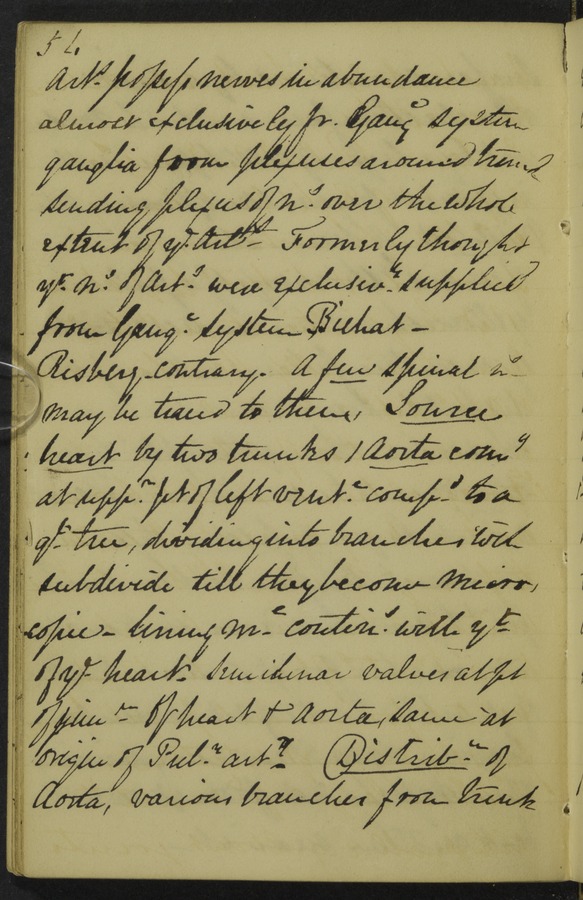 54
Arts. possess nerves in abundance
almost exclusively fr. Gangc system
ganglia from plexuses around trunk
sending plexus of ns. over the whole
extent of ye. Arts. Formerly thought
yt. ns. of Arts. were exclusivy. supplied
from Gangc. system Bichat -
Risberg - contrary. A few spinal ns
may be traced to them, Source
heart by two trunks 1 Aorta comg
at uppr. pt of left ventc. comp.d to a
gt. tree, dividing into branches wch
subdivide till they become micros,
copic - lining me. contins. with yt.
of ye. heart. Semilunar valves at pt
of junn. of heart & Aorta, same at
origin of Puly. arty. Distribn. of
Aorta, various branches from trunk